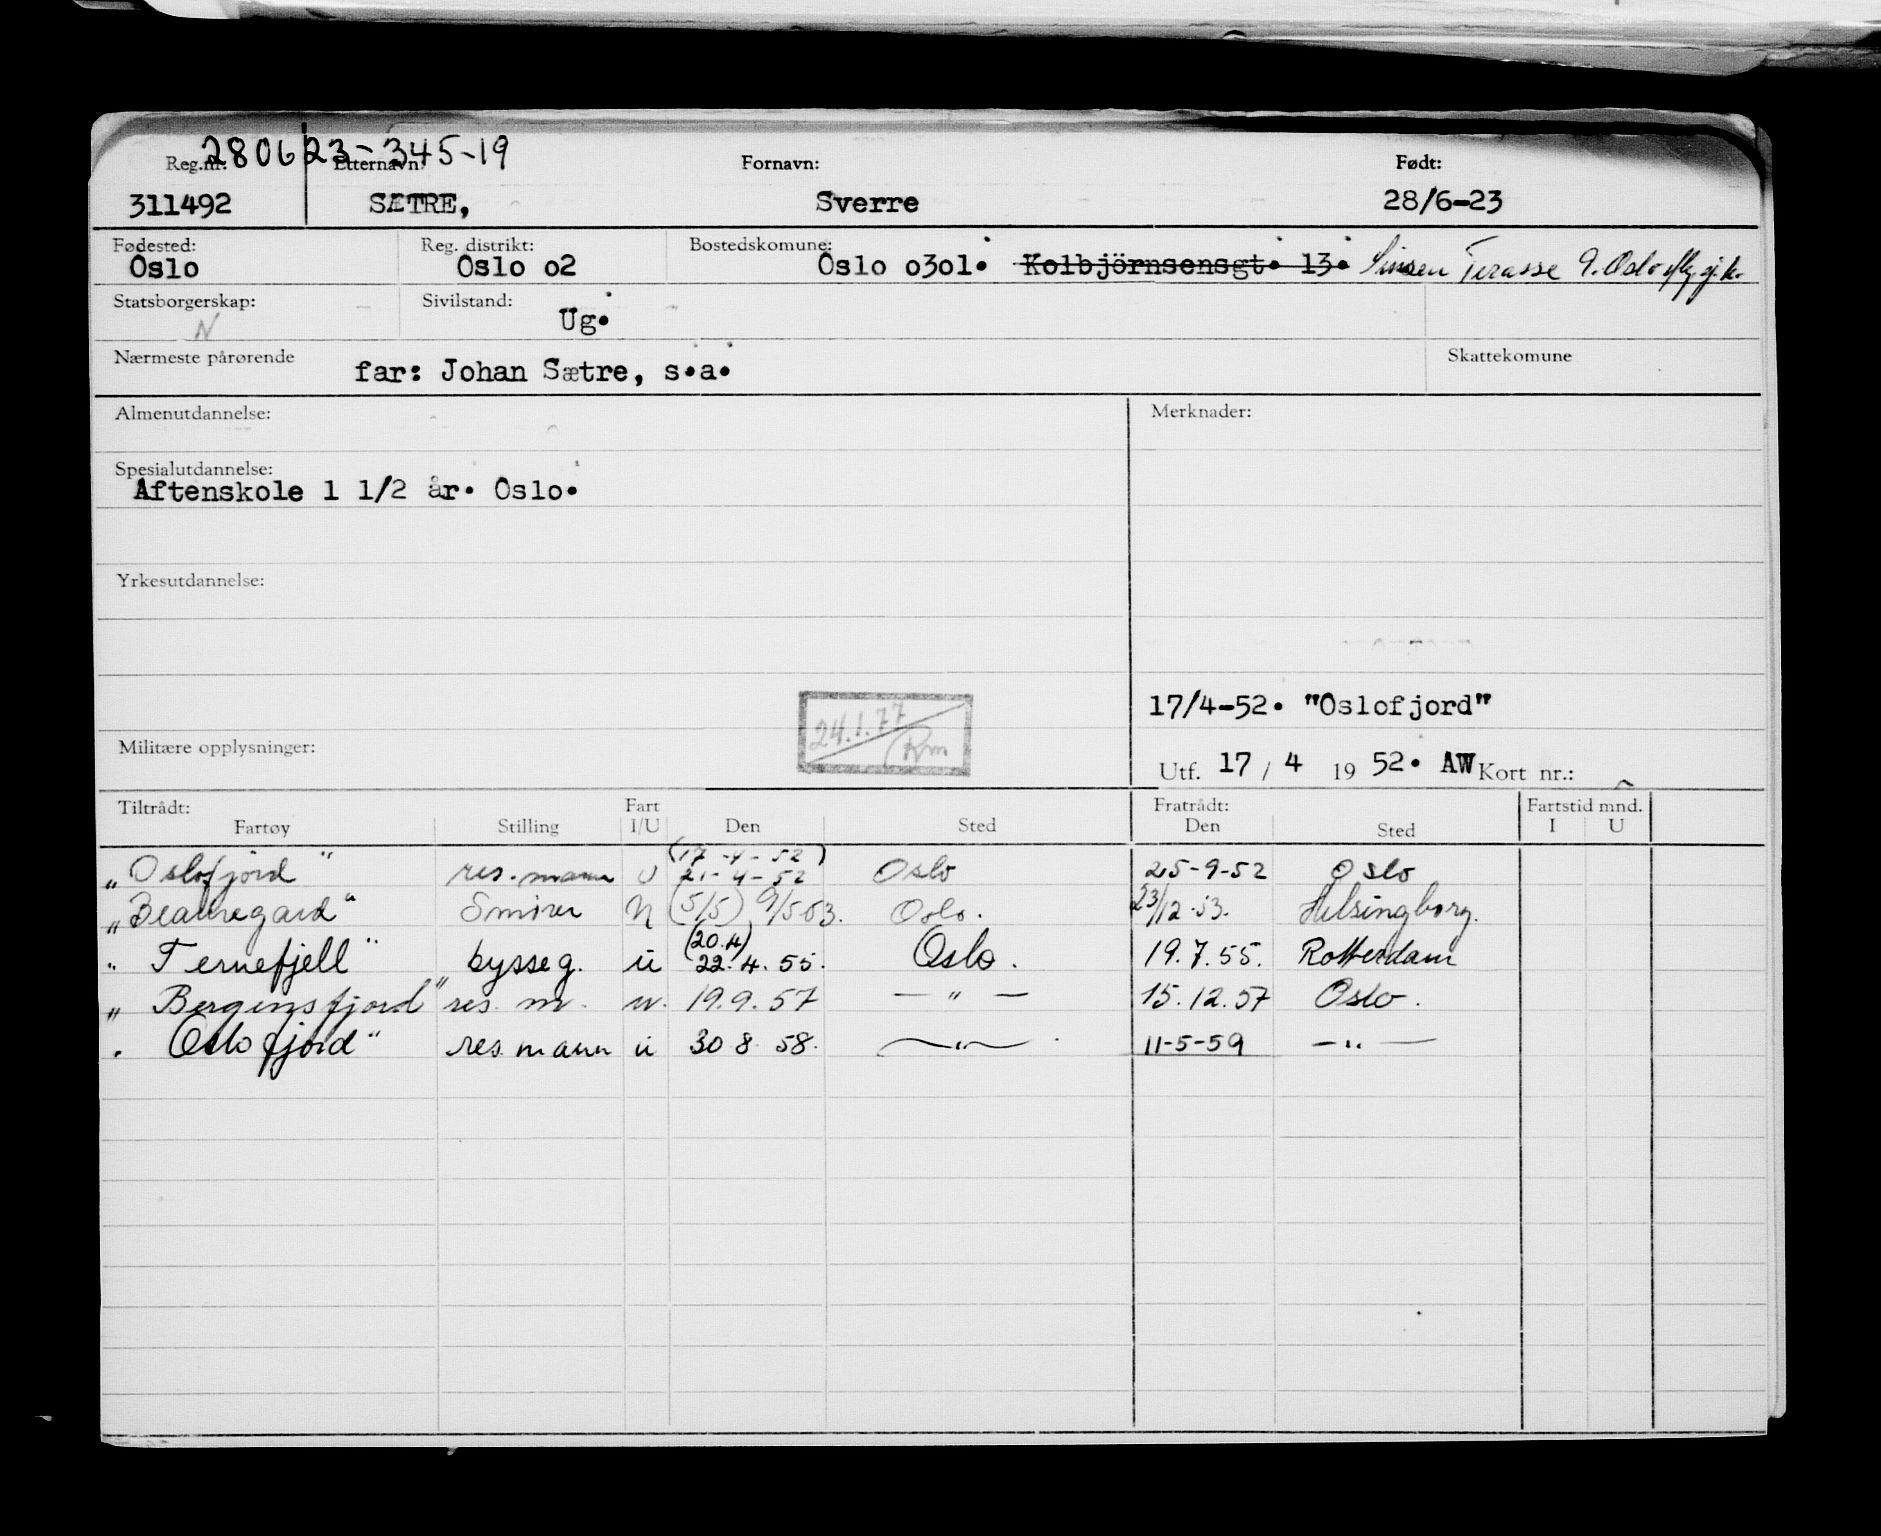 280623-345-19
Reg.nr. Etternavn: Fornavn: Født:
311492 SÆTRE, Sverre 28/6-23
Fødested: Reg. distrikt: Bostedskomune:
Oslo Oslo o2 Oslo o3o1. Kolbjörnsensgt. 13. Sinsen Terasse 9. Oslo
Statsborgerskap: Sivilstand:
N Ug.
Nærmeste pårørende far: Johan Sætre, s.a. Skattekomune
Almenutdannelse: Merknader:
Spesialutdannelse:
Aftenskole 1 1/2 år. Oslo.
Yrkesutdannelse:
17/4-52. "Oslofjord"
24.1.77
Rm
Militære opplysninger: Utf. 17 / 4 19 52. AW Kort nr.:
Tiltrådt: Fart Fratrådt: Fartstid mnd.
Fartøy Stilling I/U Den Sted Den Sted I U
(17-4-52)
„Oslofjord" res.mann U 21-4-52 Oslo 25-9-52 Oslo
„Beauregard" Smører N (5/5) 9/5-53. Oslo. 23/12-53. Helsingborg.
(20.4)
" Ternefjell" bysseg. u 22.4.55. Oslo. 19.7.55. Rotterdam
„ Bergensfjord" res. m. u. 19.9.57 — " — 15.12.57 Oslo.
" Oslofjord" res. mann u 30 8 58. — " — 11-5-59 — " —